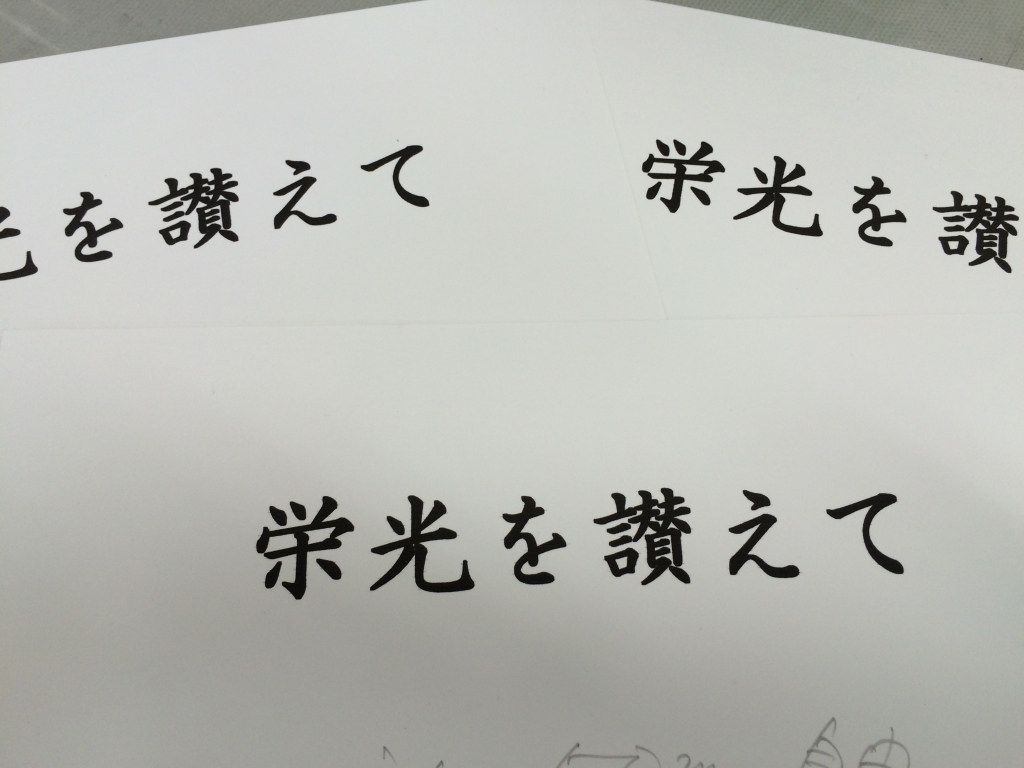 を讃えて
栄光を讃
栄光を讃えて